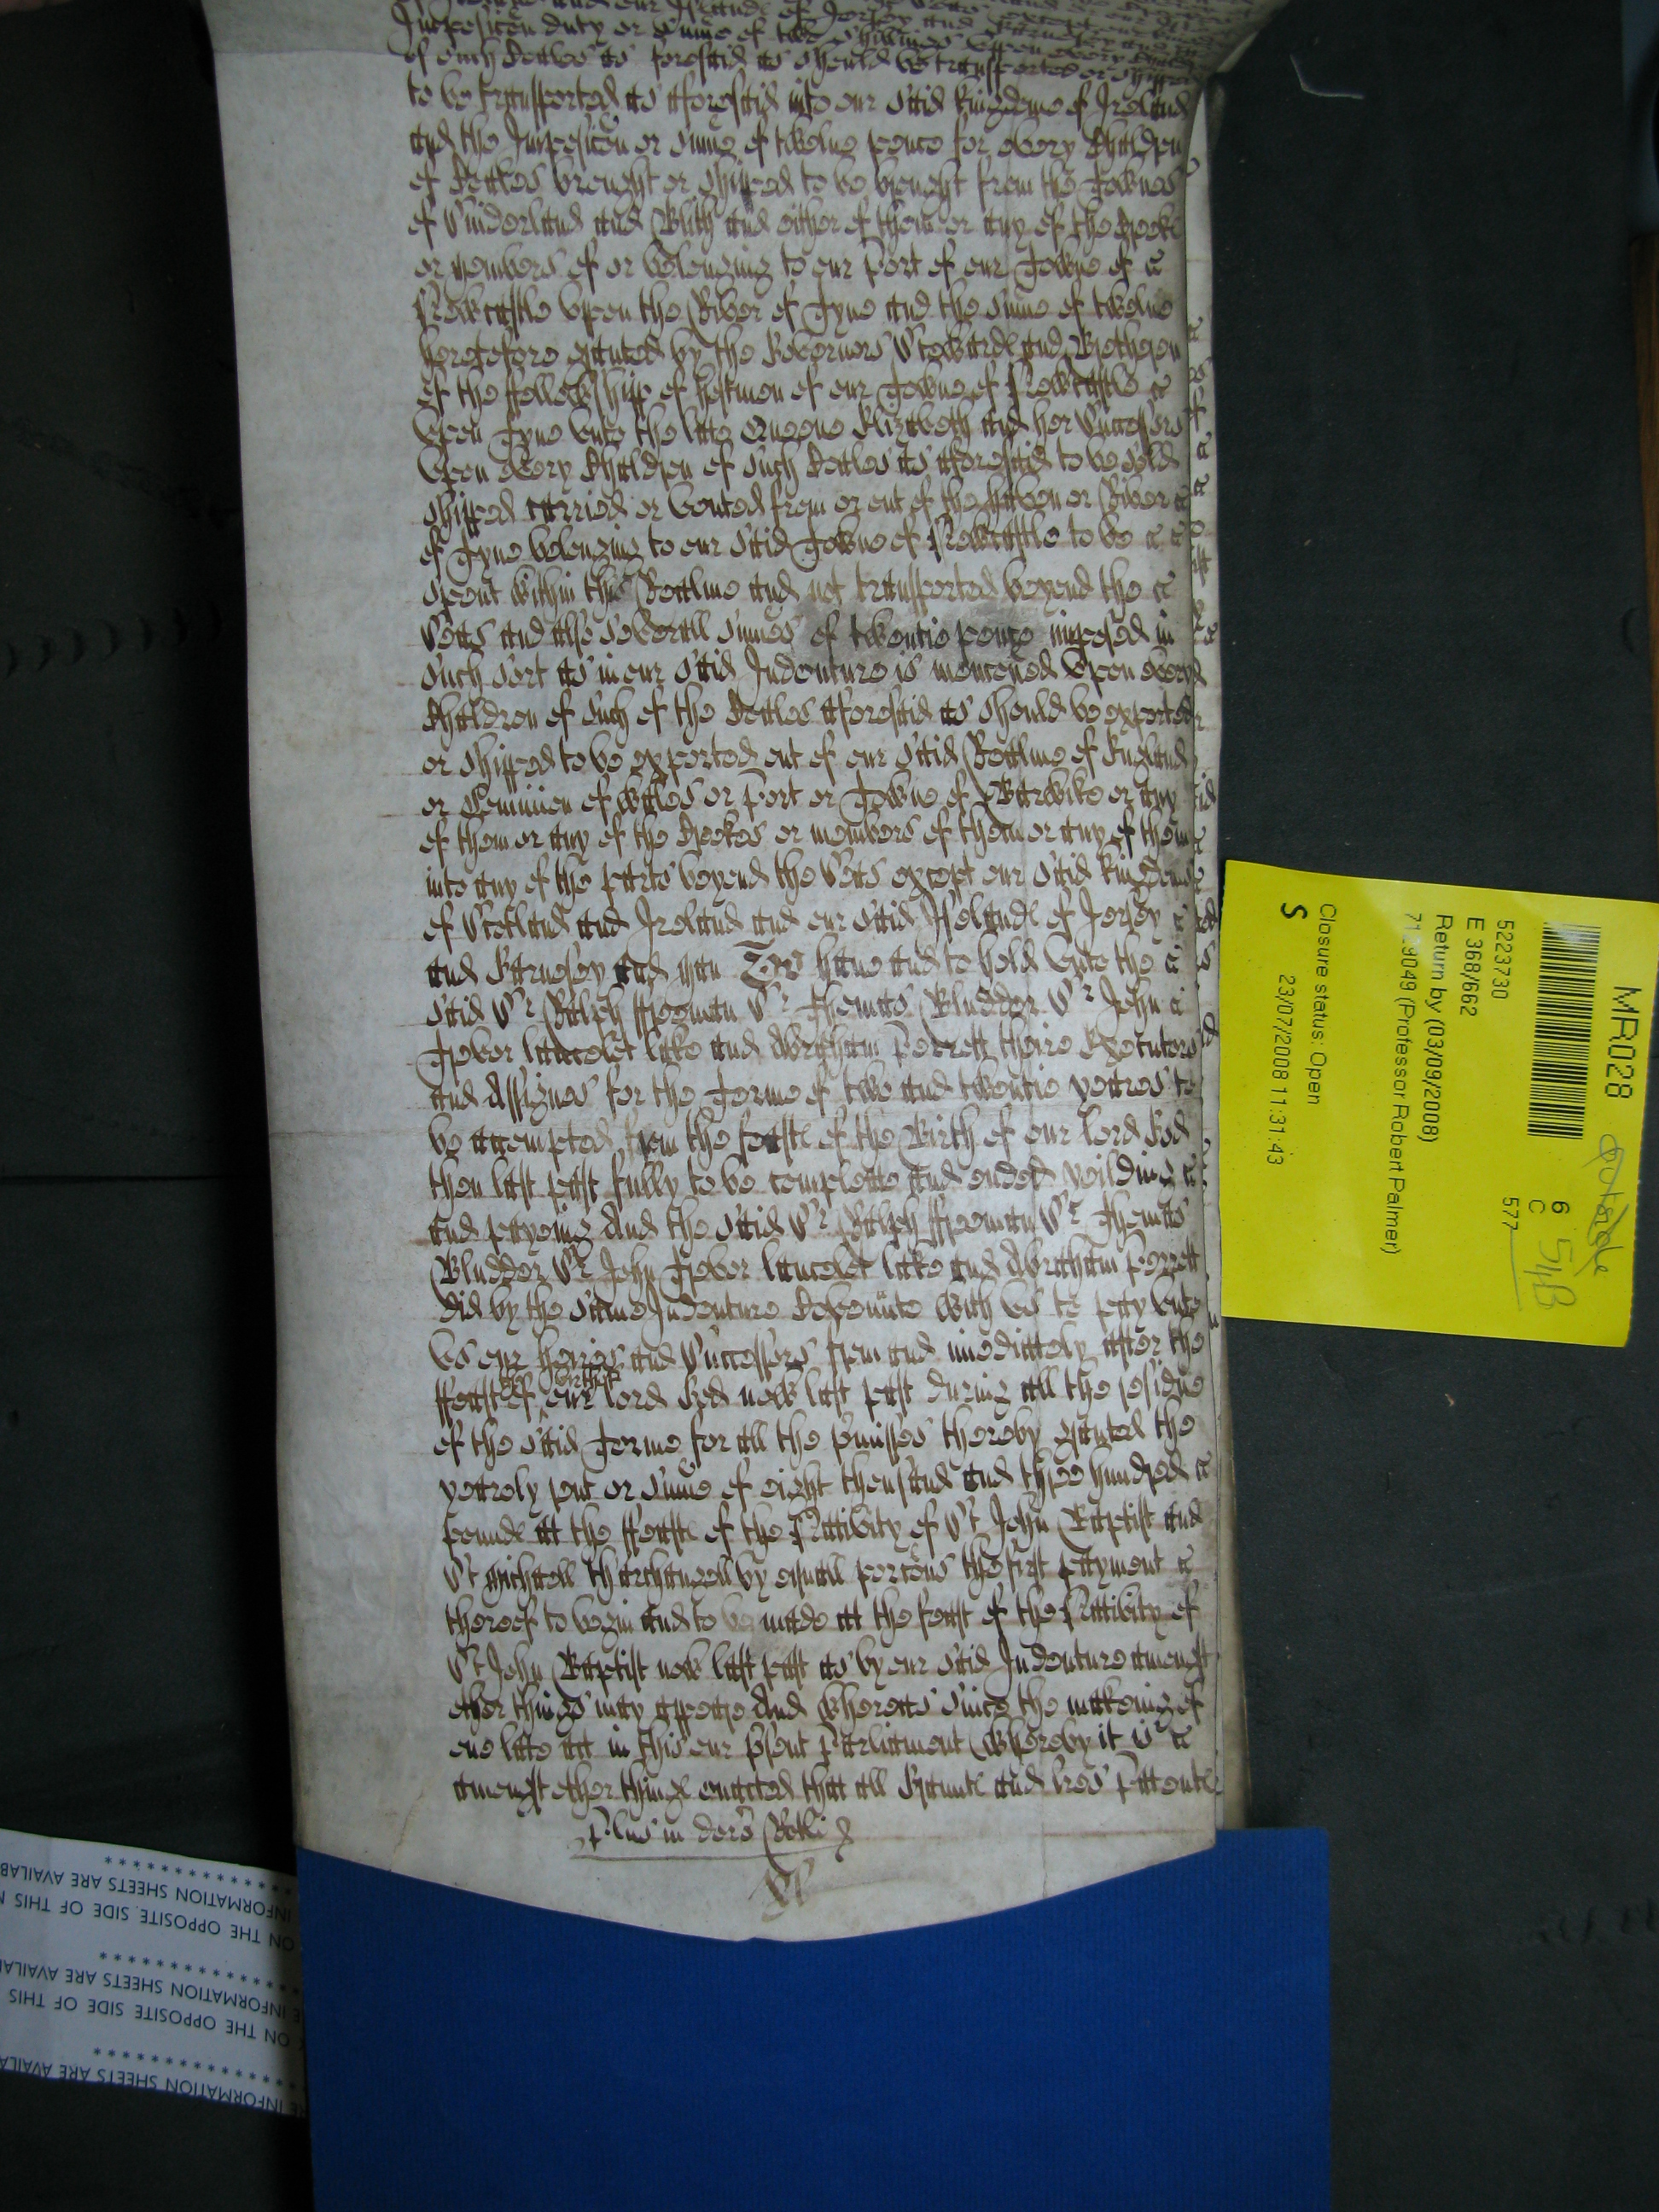 and our Islande of Jersey and
Imposicon duty or sume of two shillings uppon every Chaldron
of such Coales as foresaid as should be transported or shipped
to be transported as aforesaid into our said kingdome of Ireland
and the Imposicon or sume of twelve pence for every Chaldron
of Coales brought or shipped to be brought from the Townes
of Sunderland and Blith and either of them or any of the Creeke
or members of or belonging to our Port of our Towne of
Newcastle upon the River of Tyne and the sume of twelve
heretofore graunted by the Governors Stewarde and Brethren
of the ffellowshipp of hostmen of our Towne of Newcastle
upon Tyne unto the late Queene Elizabeth and her Successors
upon every Chaldron of such Coales as aforesaid to be sold
shipped carried or vented from or out of the haven or River
of Tyne belonging to our said Towne of Newcastle to be
spent within this Realme and not transported beyond the
Seas and also severall sumes of twentie pence imposed in
such sort as in our said Indenture is menconed upon every
Chaldron of such of the Coales aforesaid as should be exported
or shipped to be exported out of our said Realme of England
or Dominion of Wales or Port or Towne of Barwike or any
of them or any of the Creekes or members of them or any of them
into any of the parts beyond the Seas except our said kingdome
of Scotland and Ireland and our said Islande of Jersey
and Garnesey and Man To have and to hold unto the
said Sr Ralph ffreeman Sr Thomas Bludder Sr John
Tyber Lancelot Lake and Abraham Perrett theire Executors
and Assignes for the Terme of two and twentie yeares to
be accompted from the feaste of the Birth of our Lord God
then last past fully to be compleate and ended yeilding
and payeing And the said Sr Ralph ffreeman Sr Thomas
Bludder Sr John Tyber Lancelot Lake and Abraham Perrett
did by the same Indenture Covenute with us to pay unto
us our heires and Successors from and imediately after the
ffeast of the birth of our Lord God now last past during all the residue
of the said Terme for all the pmisses thereby graunted the
yearely rent or sume of eight thousand and three hundred
pounde att the ffeaste of the Nativity of St John Baptist and
St Michaell Tharchangell by equall porcons the first payment
thereof to begin and to be made att the feast of the Nativity of
St John Baptist now last past as by our said Indenture amongst
other things may appeare And whereas since the makeing of
one late act in this our psent Parliament whereby it is
amongst other thinge enacted that all Graunte and lres Pattente
Plus in dors Rotli
MR028
5223730
E 368/662
Return by (03/09/2008)
7129049 (Professor Robert Palmer)
Closure status: Open
S 23/07/2008 11:31:43
6
C
577
outside
54B
INFORMATION SHEETS ARE AVAILAB
ON THE OPPOSITE SIDE OF THIS
INFORMATION SHEETS ARE AVAILA
ON THE OPPOSITE SIDE OF THIS
INFORMATION SHEETS ARE AVAILA